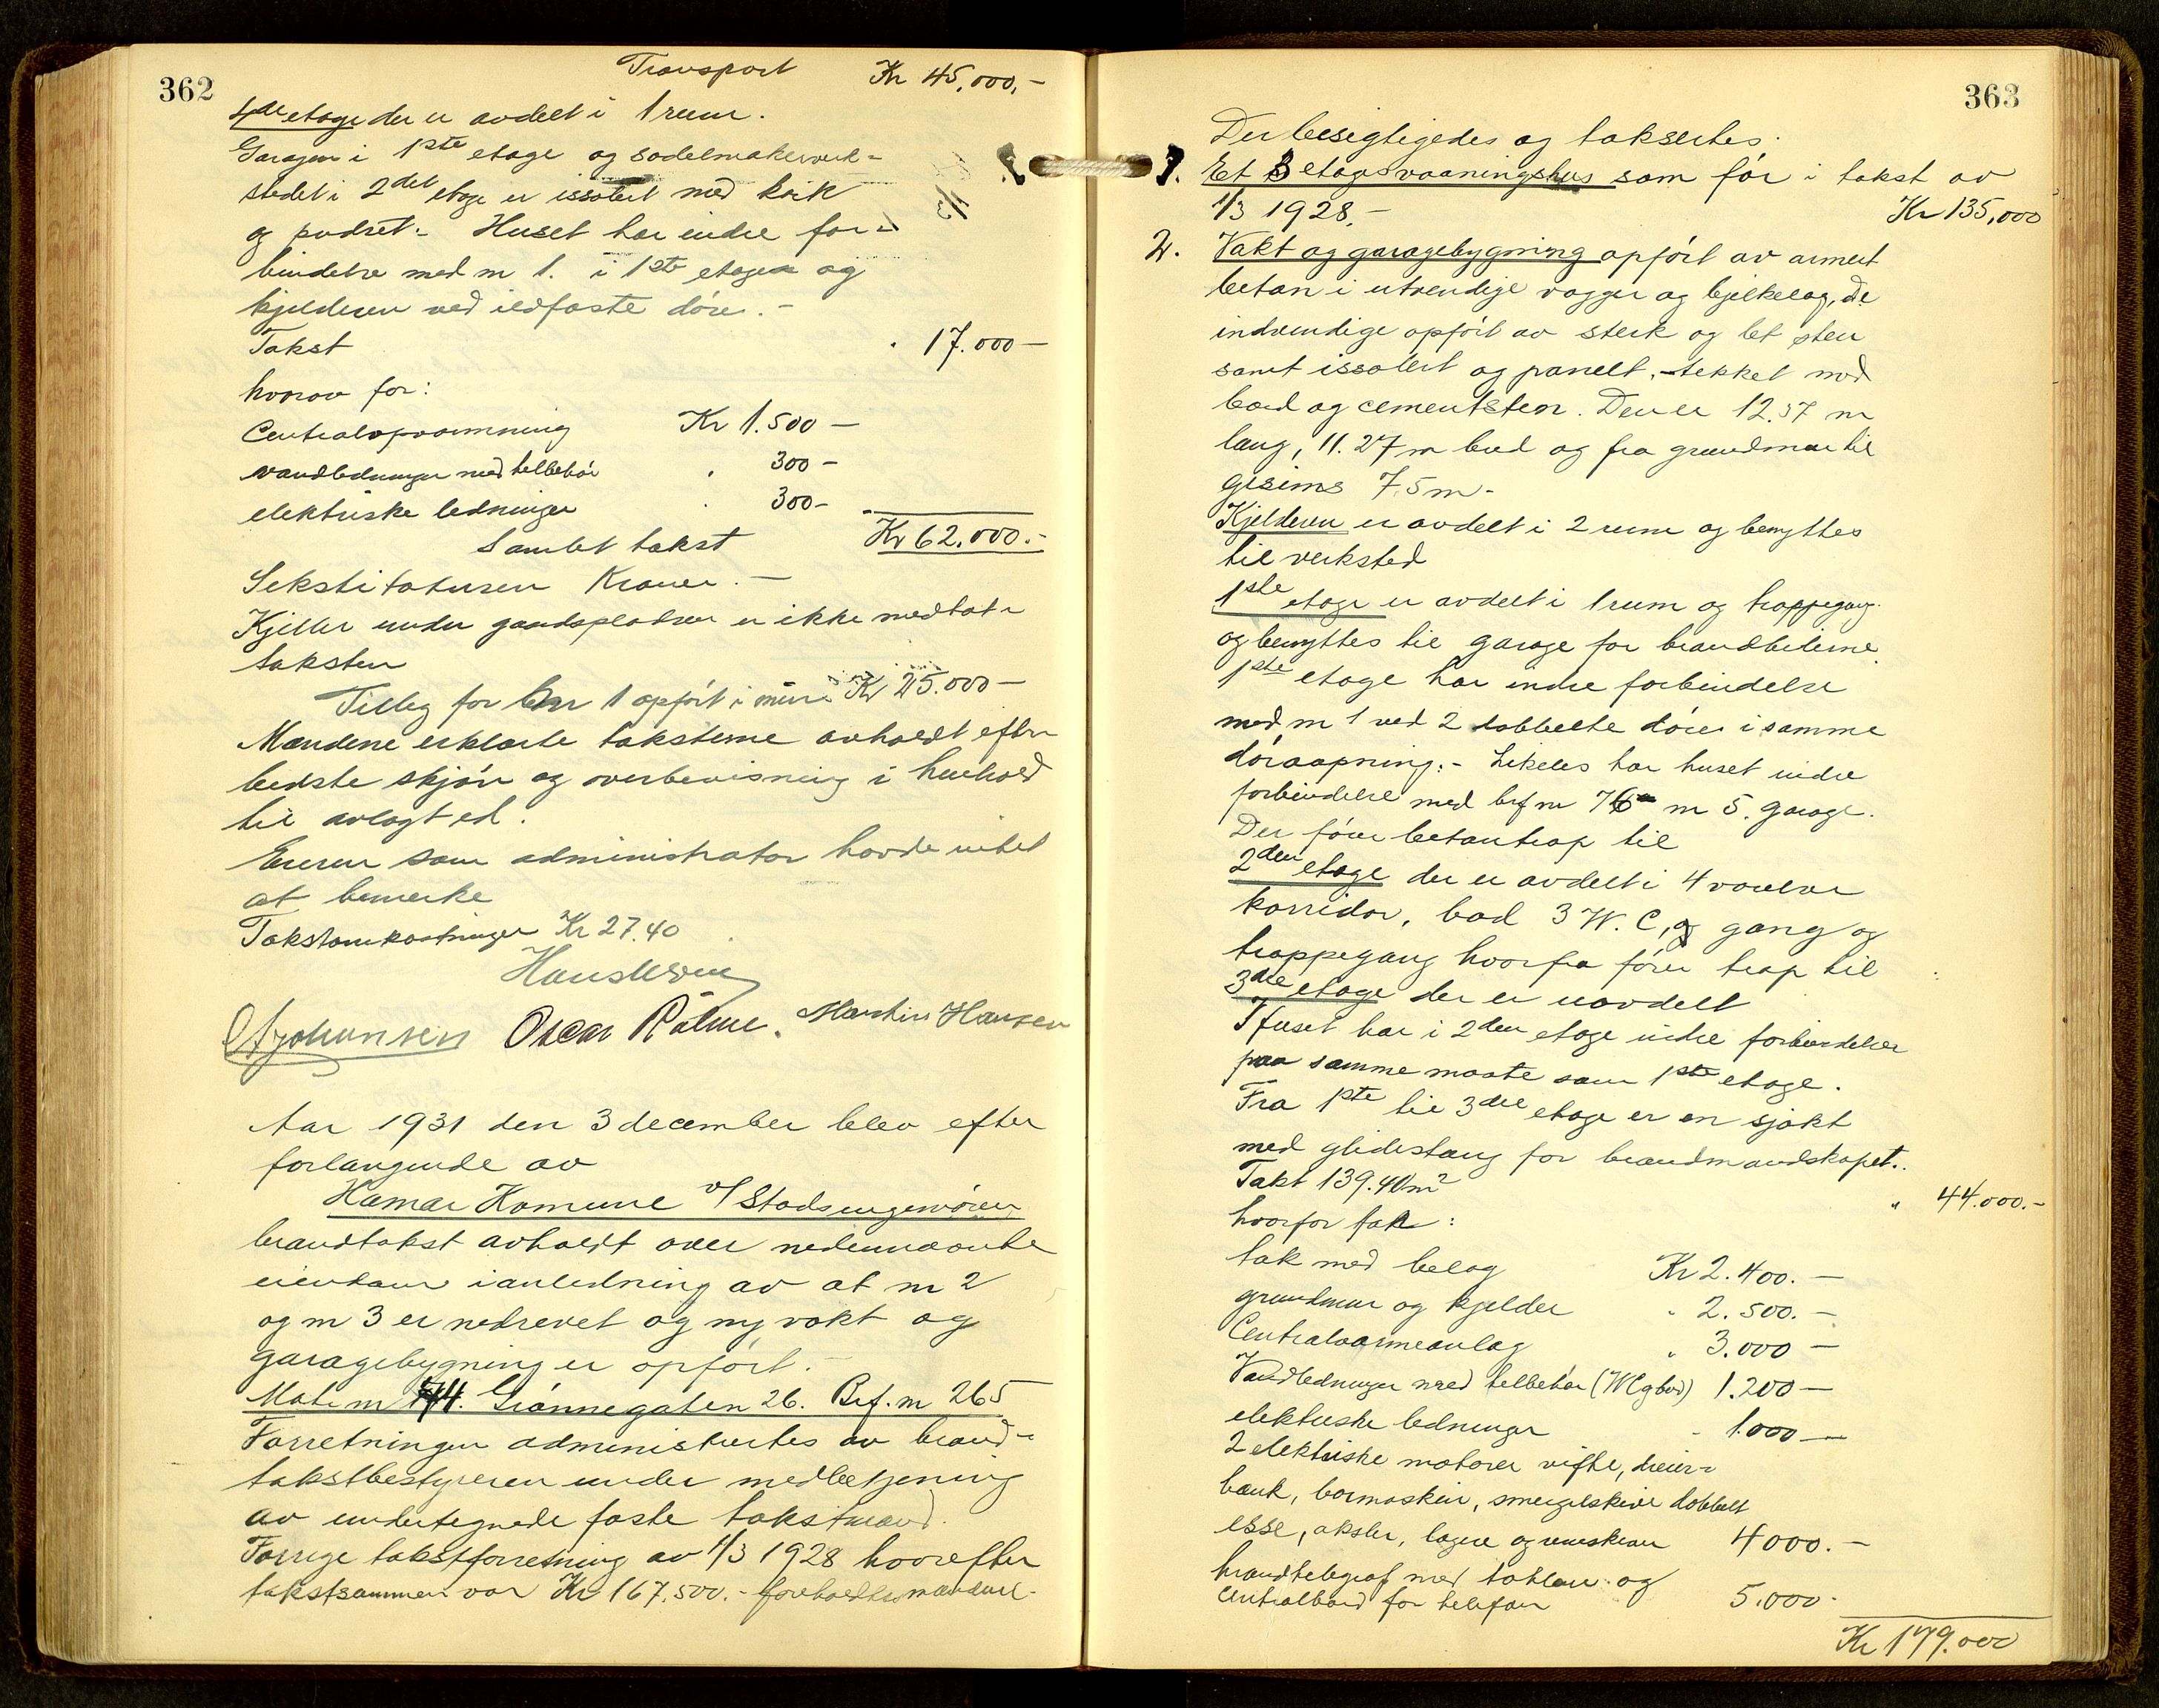 362
Transport Kr 45.000,-
4de etage der er avdelt i 1 rum.
Garagen i 1ste etage og sadelmakerverk-
stedet i 2det etage er issolert med kork
og pudset. - Huset har indre for-
bindelse med nr 1. i 1ste etagen og
kjelderen ved ildfaste döre. -
Takst " 17.000 -
hvorav for:
Centralopvarmning Kr 1.500 -
vandledninger med tilbehör " 300 -
elektriske ledninger " 300 -
Samlet takst Kr 62.000.-
Sekstitotusen Kroner. -
Kjeller under gaardspladsen er ikke medtat i
taksten
Tilleg for nr 1 opfört i mur: Kr 25.000 -
Mændene erklærte taksterne avholdt efter
bedste skjön og overbevisning i henhold
til avlagt ed.
Eieren som administrator havde intet
at bemerke
Takstomkostninger Kr 27.40
Johansen Oscar Martin Hansen
Aar 1931 den 3 december blev efter
forlangende av
Hamar Komune v/ Stadsingeniören
brandtakst avholdt over nedennævnte
eiendom i anledning av at nr 2
og nr 3 er nedrevet og ny vakt og
garagebygning er opfört. -
Matr nr 44. Grönnegaten 26. Brf. nr 265
Forretningen administrertes av brand-
takstbestyreren under medbetjening
av undertegnede faste takstmænd.
Forrige takstforretning av 1/3 1928 hvorefter
takstsummen var Kr 167.500.- foreholdtes mændene.
363
Der besigtigedes og taksertes:
1. Et 3 etages vaaningshus som för i takst av
1/3 1928. - Kr 135,000
2. Vakt og garagebygning opfört av armert
betong i utvendige vægger og bjelkelag, de
indvendige opfört av sterk og let sten
samt issolert og panelt, - tekket med
bord og cementsten. Den er 12.57 m
lang, 11.27 m bred og fra grundmur til
gesims 7.5 m -
Kjelderen er avdelt i 2 rum og benyttes
til verksted
1ste etage er avdelt i 1 rum og trappegang
og benyttes til garage for brandbilerne.
1ste etage har indre forbindelse
med nr 1 ved 2 dobbelte döre i samme
döraapning. - Likeles har huset indre
forbindelse med brf nr 76 nr 5. garage.
Der förer betontrap til
2den etage der er avdelt i 4 værelser
korridor, bad 3 W.C, og gang og
trappegang hvorfra förer trap til
3die etage der er uavdelt
Huset har i 2den etage indre forbindelser
paa samme maate som 1ste etage.
Fra 1ste til 3die etage er en sjakt
med glidestang for brandmandskapet.
Takst 139.40 m2 " 44.000.-
hvorfor tak:
tak med belæg Kr 2.400. -
grundmur og kjelder " 2.500. -
Centralvarmeanlæg " 3.000 -
Vandledninger med tilbehör (WC og bad) 1.200 -
elektriske ledninger " 1.000 -
2 elektriske motorer vifte, dreier-
bænk, bormaskin, smergelskive dobbelt
esse, aksler, lagere og remskiver 4000. -
brandtelegraf med tablaa og
centralbord for telefon 5.000 -
Kr 179.000